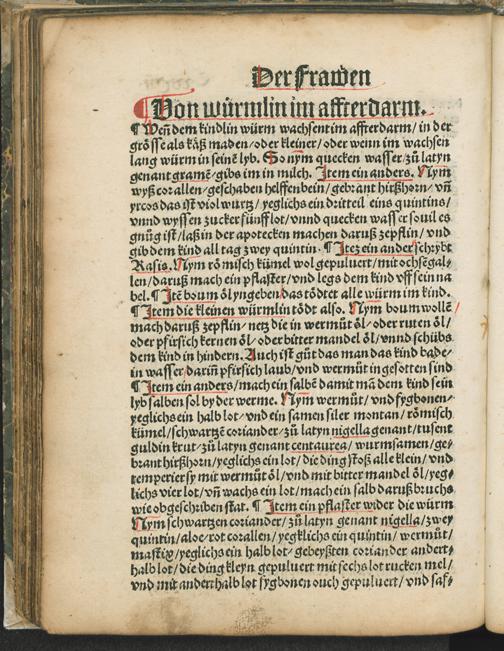 Der Frawen
¶ Von würmlin im affterdarm.
¶ Wen̄ dem kindlin würm wachsent im affterdarm/ in der
grösse als käß maden/ oder kleiner/ oder wenn im wachsen
lang würm in seinē lyb. So nym quecken wasser/ zů latyn
genant gramē/ gibs im in milch. Item ein anders. Nym
wyß corallen/ geschaben helffenbein/ gebrant hirßhorn/ vn̄
yrcos das ist viol wurtz/ yeglichs ein dritteil eins quintins/
vnnd wyssen zucker fünff lot/ vnnd quecken wasser so uil es
gnůg ist/ laß in der apotecken machen daruß zepflin/ vnd
gib dem kind all tag zwey quintin. ¶ Itez ein ander schrybt
Rasis. Nym römisch kümel wol gepuluert/ mit ochsē gal⸗
len/ daruß mach ein pflaster/ vnd legs dem kind vff sein na
bel. ¶ Itē boum öl yngeben/ das tödtet alle würm im kind.
¶ Item die kleinen würmlin tödt also. Nym boum wollē
mach daruß zepflin/ netz die in wermůt öl/ oder ruten öl/
oder pfirsich kernen öl/ oder bitter mandel öl/ vnnd schübs
dem kind in hindern. Auch ist gůt das man das kind bade⸗
in wasser/ darin̄ pfirsich laub/ vnd wermůt in gesotten sind
¶ Item ein anders/ mach ein salbē damit mā dem kind sein
lyb salben sol by der werme. Nym wermůt/ vnd fygbonen⸗
yeglichs ein halb lot/ vnd ein samen siler montan/ römisch
kümel/ schwartzē coriander/ zů latyn nigella genant/ tusent
guldin krut/ zů latyn genant centaurea/ wurmsamen/ ge⸗
brant hirßhorn/ yeglichs ein lot/ die ding stoß alle klein/ vnd
temperiers y mit wermůt öl/ vnd mit bitter mandel öl/ yeg⸗
lichs vier lot/ vn̄ wachs ein lot/ mach ein salb daruß bruchs
wie obgeschriben stat. ¶ Item ein pflaster wider die würm
Nym schwartzen coriander/ zů latyn genant nigella/ zwey
quintin/ aloe/ rot corallen/ yegklichs ein quintin/ wermůt/
mastix/ yeglichs ein halb lot/ gebeyßten coriander andert⸗
halb lot/ die ding kleyn gepuluert mit sechs lot rucken mel/
vnd mit anderthalb lot fygbonen ouch gepuluert/ vnd saf⸗